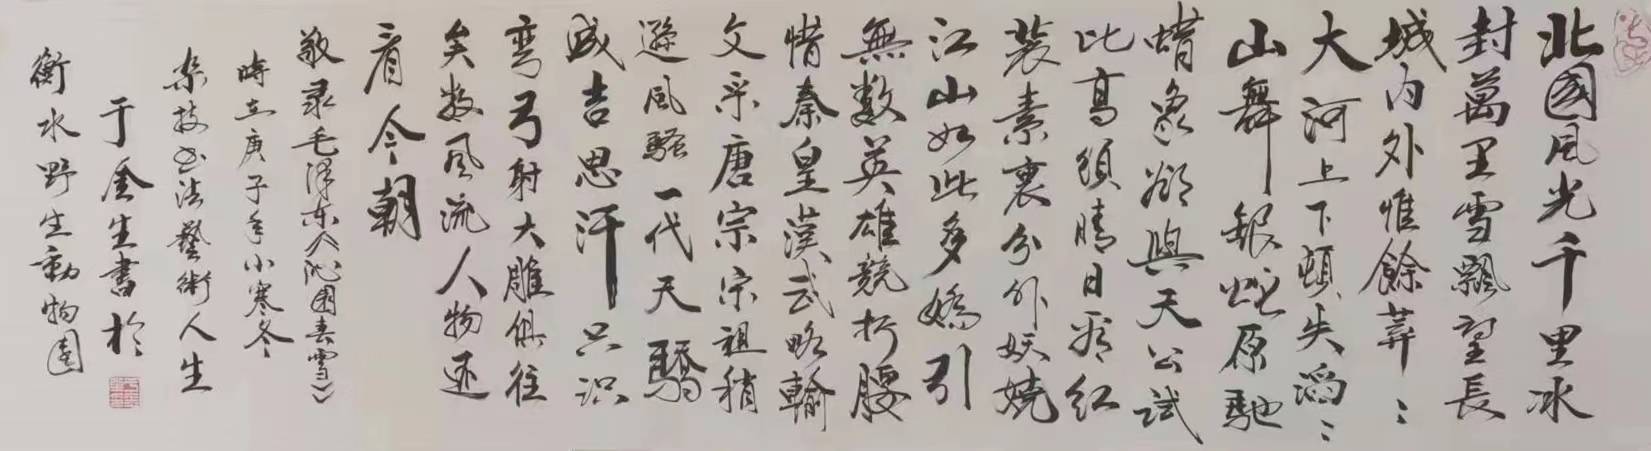 北國風光千里冰
封萬里雪飄望長
城内外惟餘莽〻
大河上下頓失滔〻
山舞銀蛇原馳
蜡象欲與天公試
比高須晴日看紅
裝素裹分外妖嬈
江山如此多嬌引
無數英雄競折腰
惜秦皇漢武略輸
文采唐宗宋祖稍
遜風騷一代天驕
成吉思汗只识
彎弓射大雕俱往
矣数風流人物还
看今朝
敬录毛澤东《沁園春雪》
時在庚子年小寒冬
杂技书法藝術人生
于金生書於
衡水野生動物園